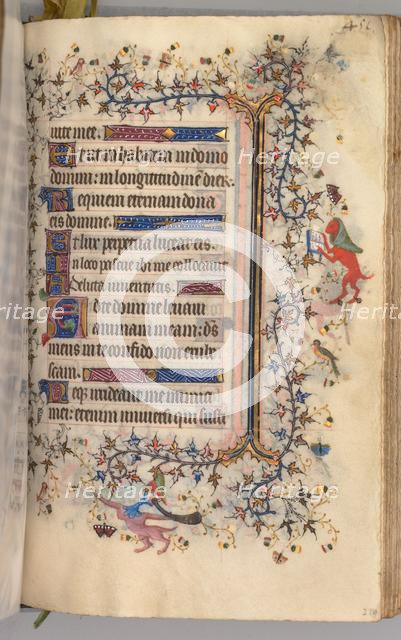 45[?]
uite mee:
Et ut inhabitem in domo
domini: in longitudinē dieꝝ.
Requiem eternam dona
eis domine.
Et lux perpetua luceat eis.
In loco pascue ibi me collocauit
Delicta iuuentutis
Ad te domine leuaui
animam meam: ds̄
meus in te confido non erube
scam.
Neqꝫ irrideant me inimici
mei: etenim uniuersi qui susti
Heritage